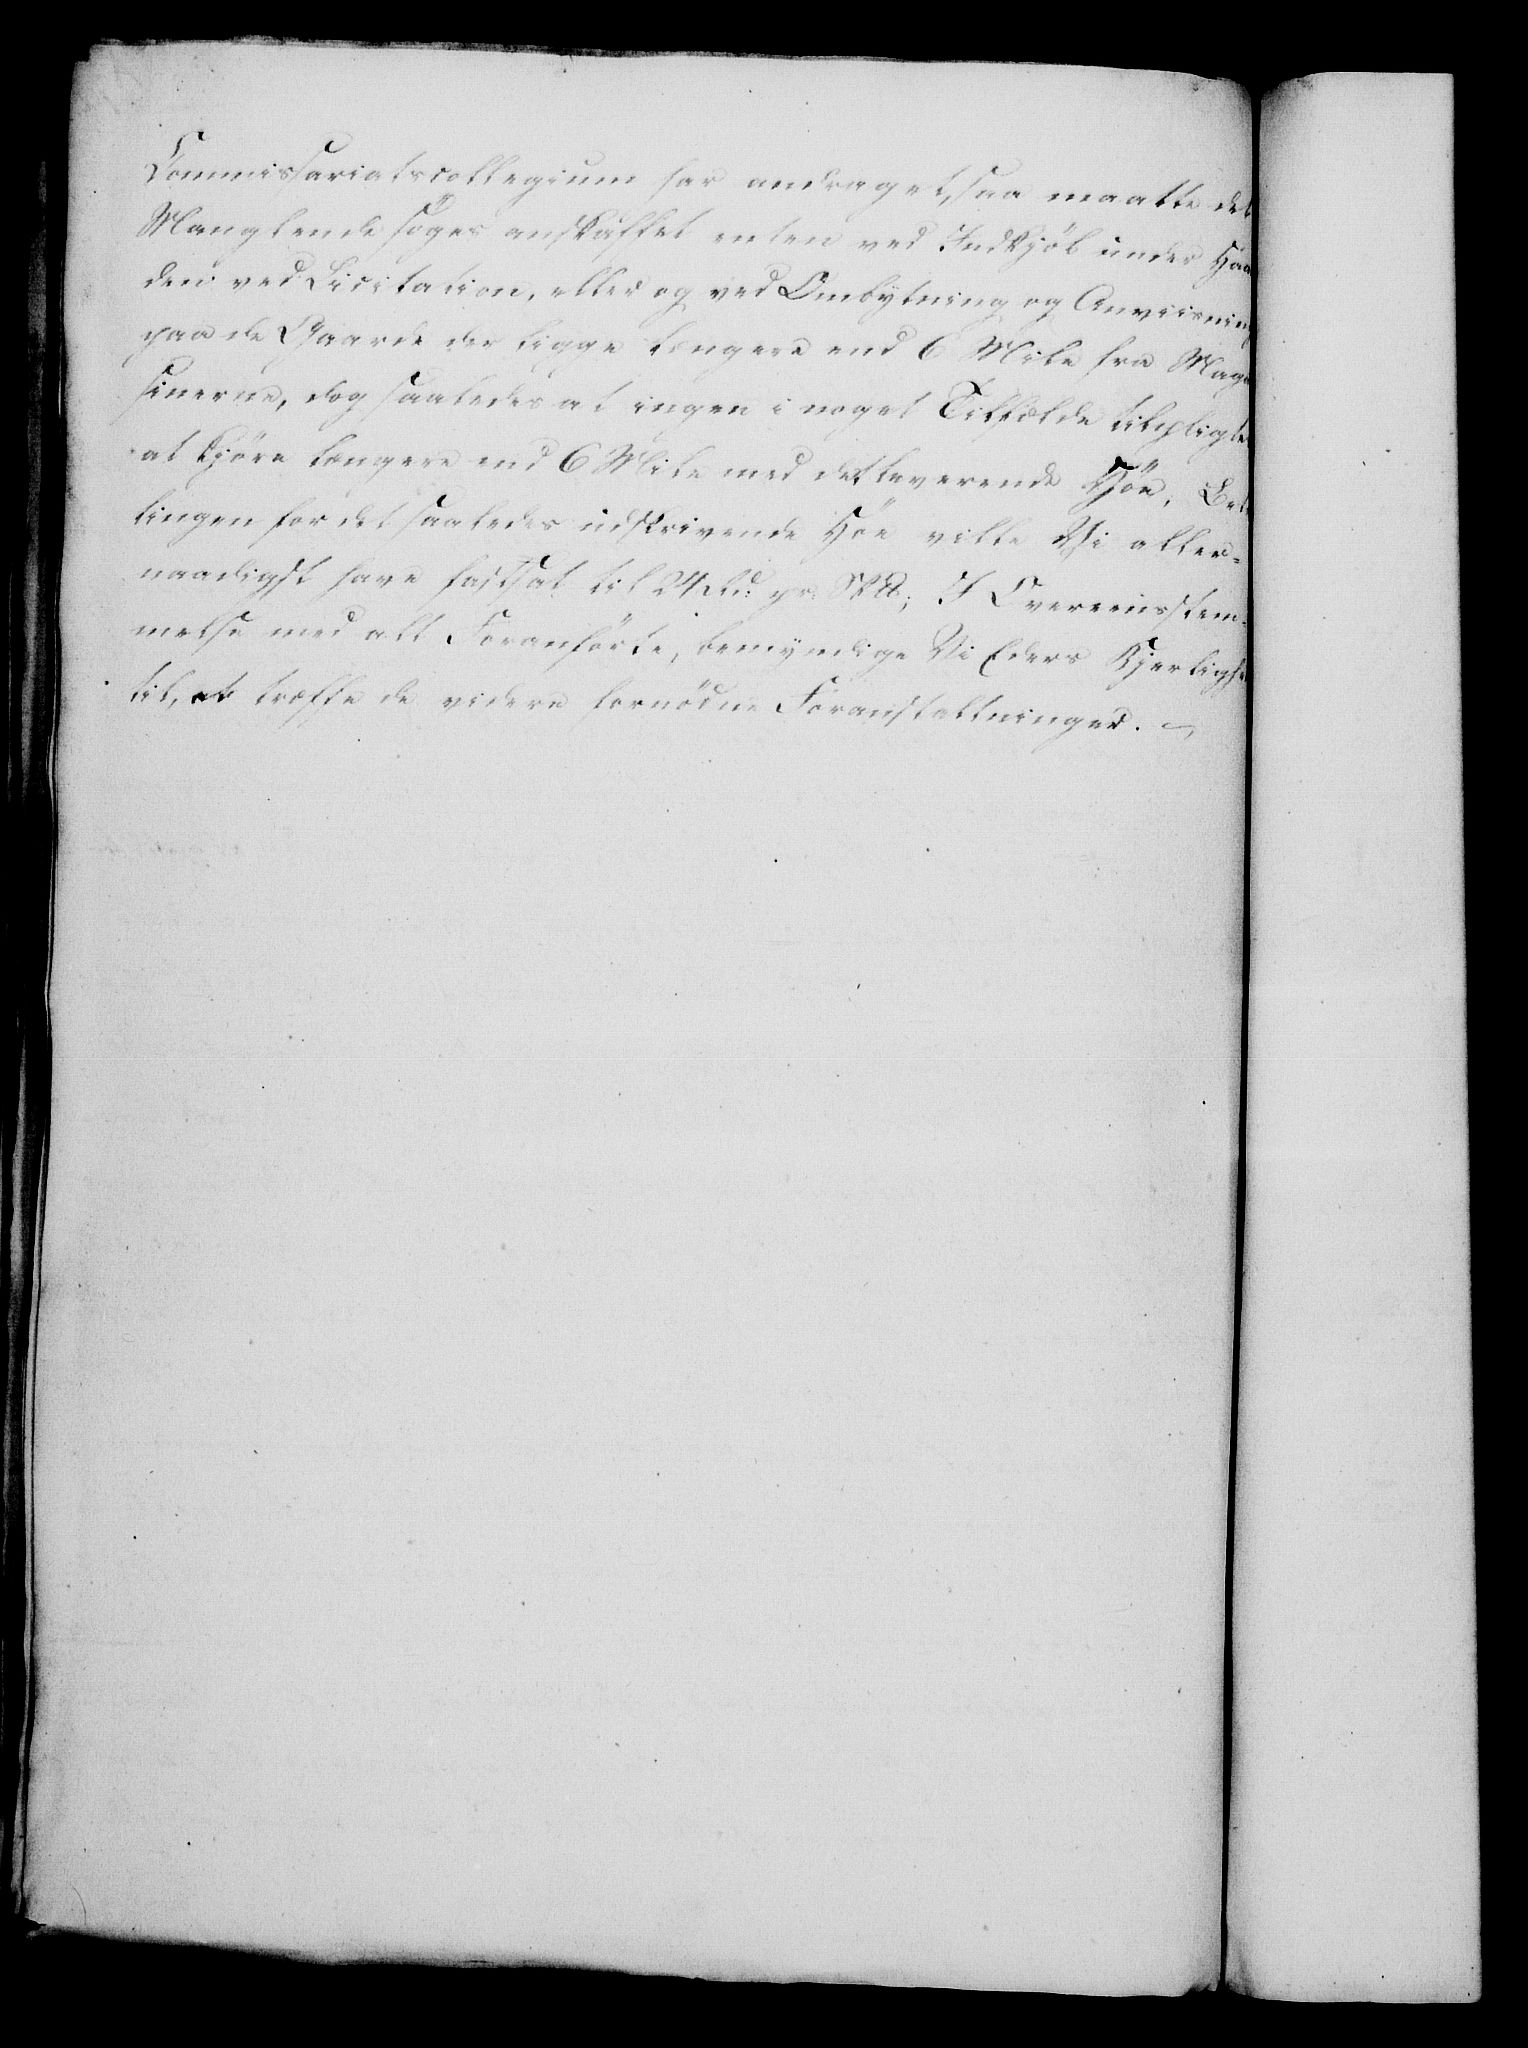 Commissariatscollegium har andraget, saa maatte det
Manglende söges anskaffet enten ved Indkjöb under Haa
den ved Licitation, eller og ved Ombytning og Anviisning
paa de Gaarde der ligge længere end 6 Mile fra Maga
sinerne, dog saaledes at ingen i noget Tilfælde tilpligtes
at kjöre længere end 6 Mile med det leverende Höe, Beta
lingen for det saaledes udskrivende Höe ville Vi aller-
naadigst have fastsat til 24 pr: Sk℔; I Overeensstem-
melse med alt Foranförte, bemyndige Vi Eders Kjerlighed
til, at træffe de videre fornödne Foranstaltninger.